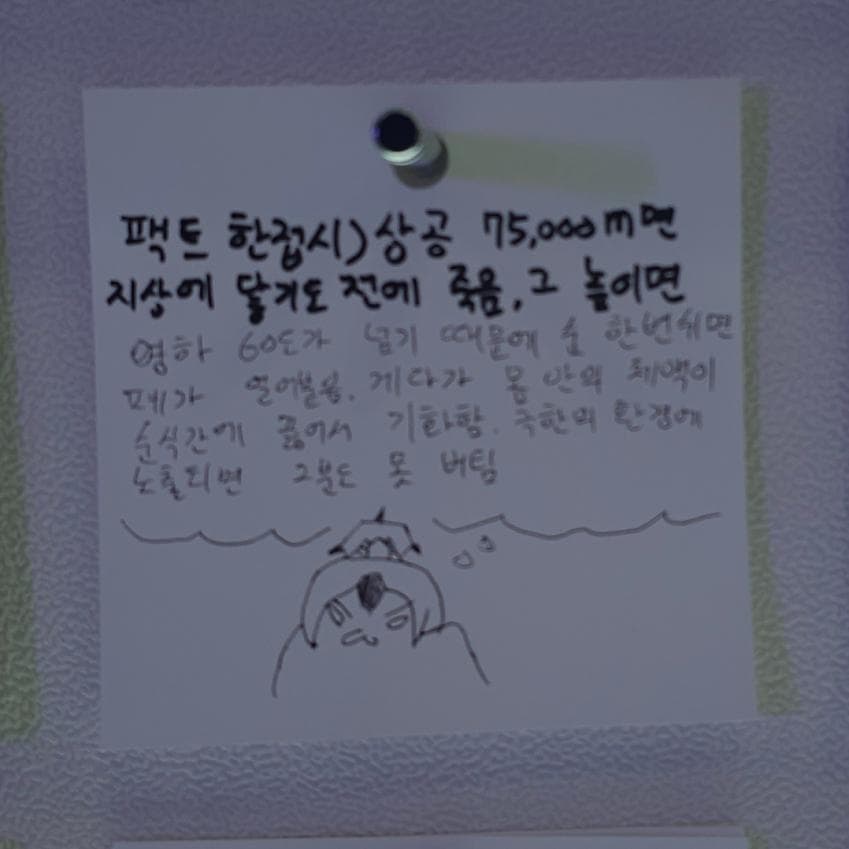 팩트 한접시) 상공 75,000m면
지상에 닿기도 전에 죽음, 그 높이면
영하 60도가 넘기 때문에 숨 한번쉬면
폐가 얼어붙음. 게다가 몸 안의 체액이
순식간에 끓어서 기화함. 극한의 환경에
노출되면 2분도 못 버팀